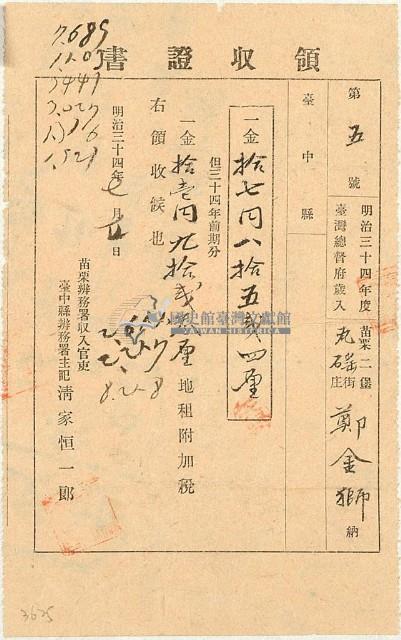 領收證書
第五號
明治三十四年度
臺灣總督府歲入
臺中縣
苗栗二堡
街
庄
鄭金獅納
一金拾七円八拾五錢四厘
但三十四年前期分
一金拾壹円九拾貳錢 厘 地租附加稅
右領收候也
明治三十四年七月 日
苗栗辨務署收入官吏
臺中縣辨務署主記 淸家恒一郎
歷史館臺灣文獻館
TAIWAN HISTORICA
7.689
8.228
3625